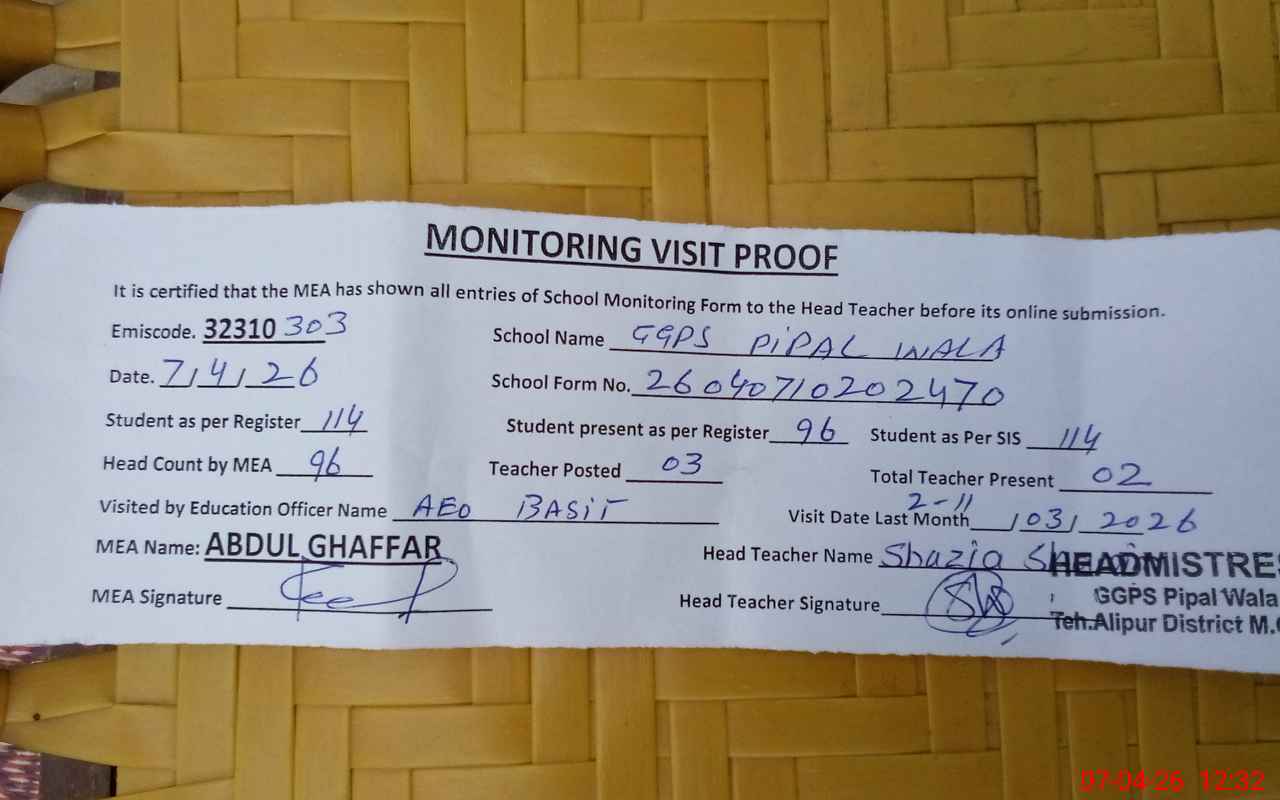 MONITORING VISIT PROOF
It is certified that the MEA has shown all entries of School Monitoring Form to the Head Teacher before its online submission.
Emiscode. 32310303 School Name GGPS PIPAL WALA
Date. 7/4/26 School Form No. 26040710202470
Student as per Register 114 Student present as per Register 96 Student as Per SIS 114
Head Count by MEA 96 Teacher Posted 03 Total Teacher Present 02
Visited by Education Officer Name AEO BASIT Visit Date Last Month 2-11/03/2026
MEA Name: ABDUL GHAFFAR Head Teacher Name Shazia
HEADMISTRES
MEA Signature Head Teacher Signature
GGPS Pipal Wala
Teh.Alipur District M.
07-04-26 12:32